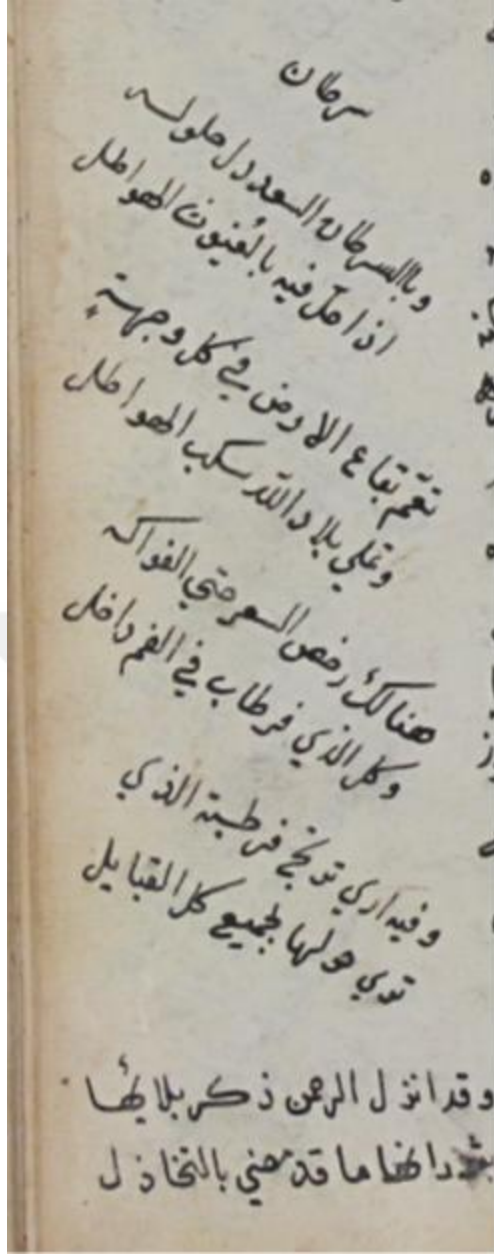 سرطان
وبالسرطان السعد دل حلوله
اذا حل فيه بالغيوث الهواطل
تعم بقاع الارض في كل وجهة
وعلى بلاد الله سكب الهواطل
هنالك رخص السعر حتي الفواكه
وكل الذي قد طاب في الفم داخل
وفيه اري الذي
تري حولها بجميع كل القبايل
وقد انزل الرحمن ذكر بلايها
ما قد بالتخاذل